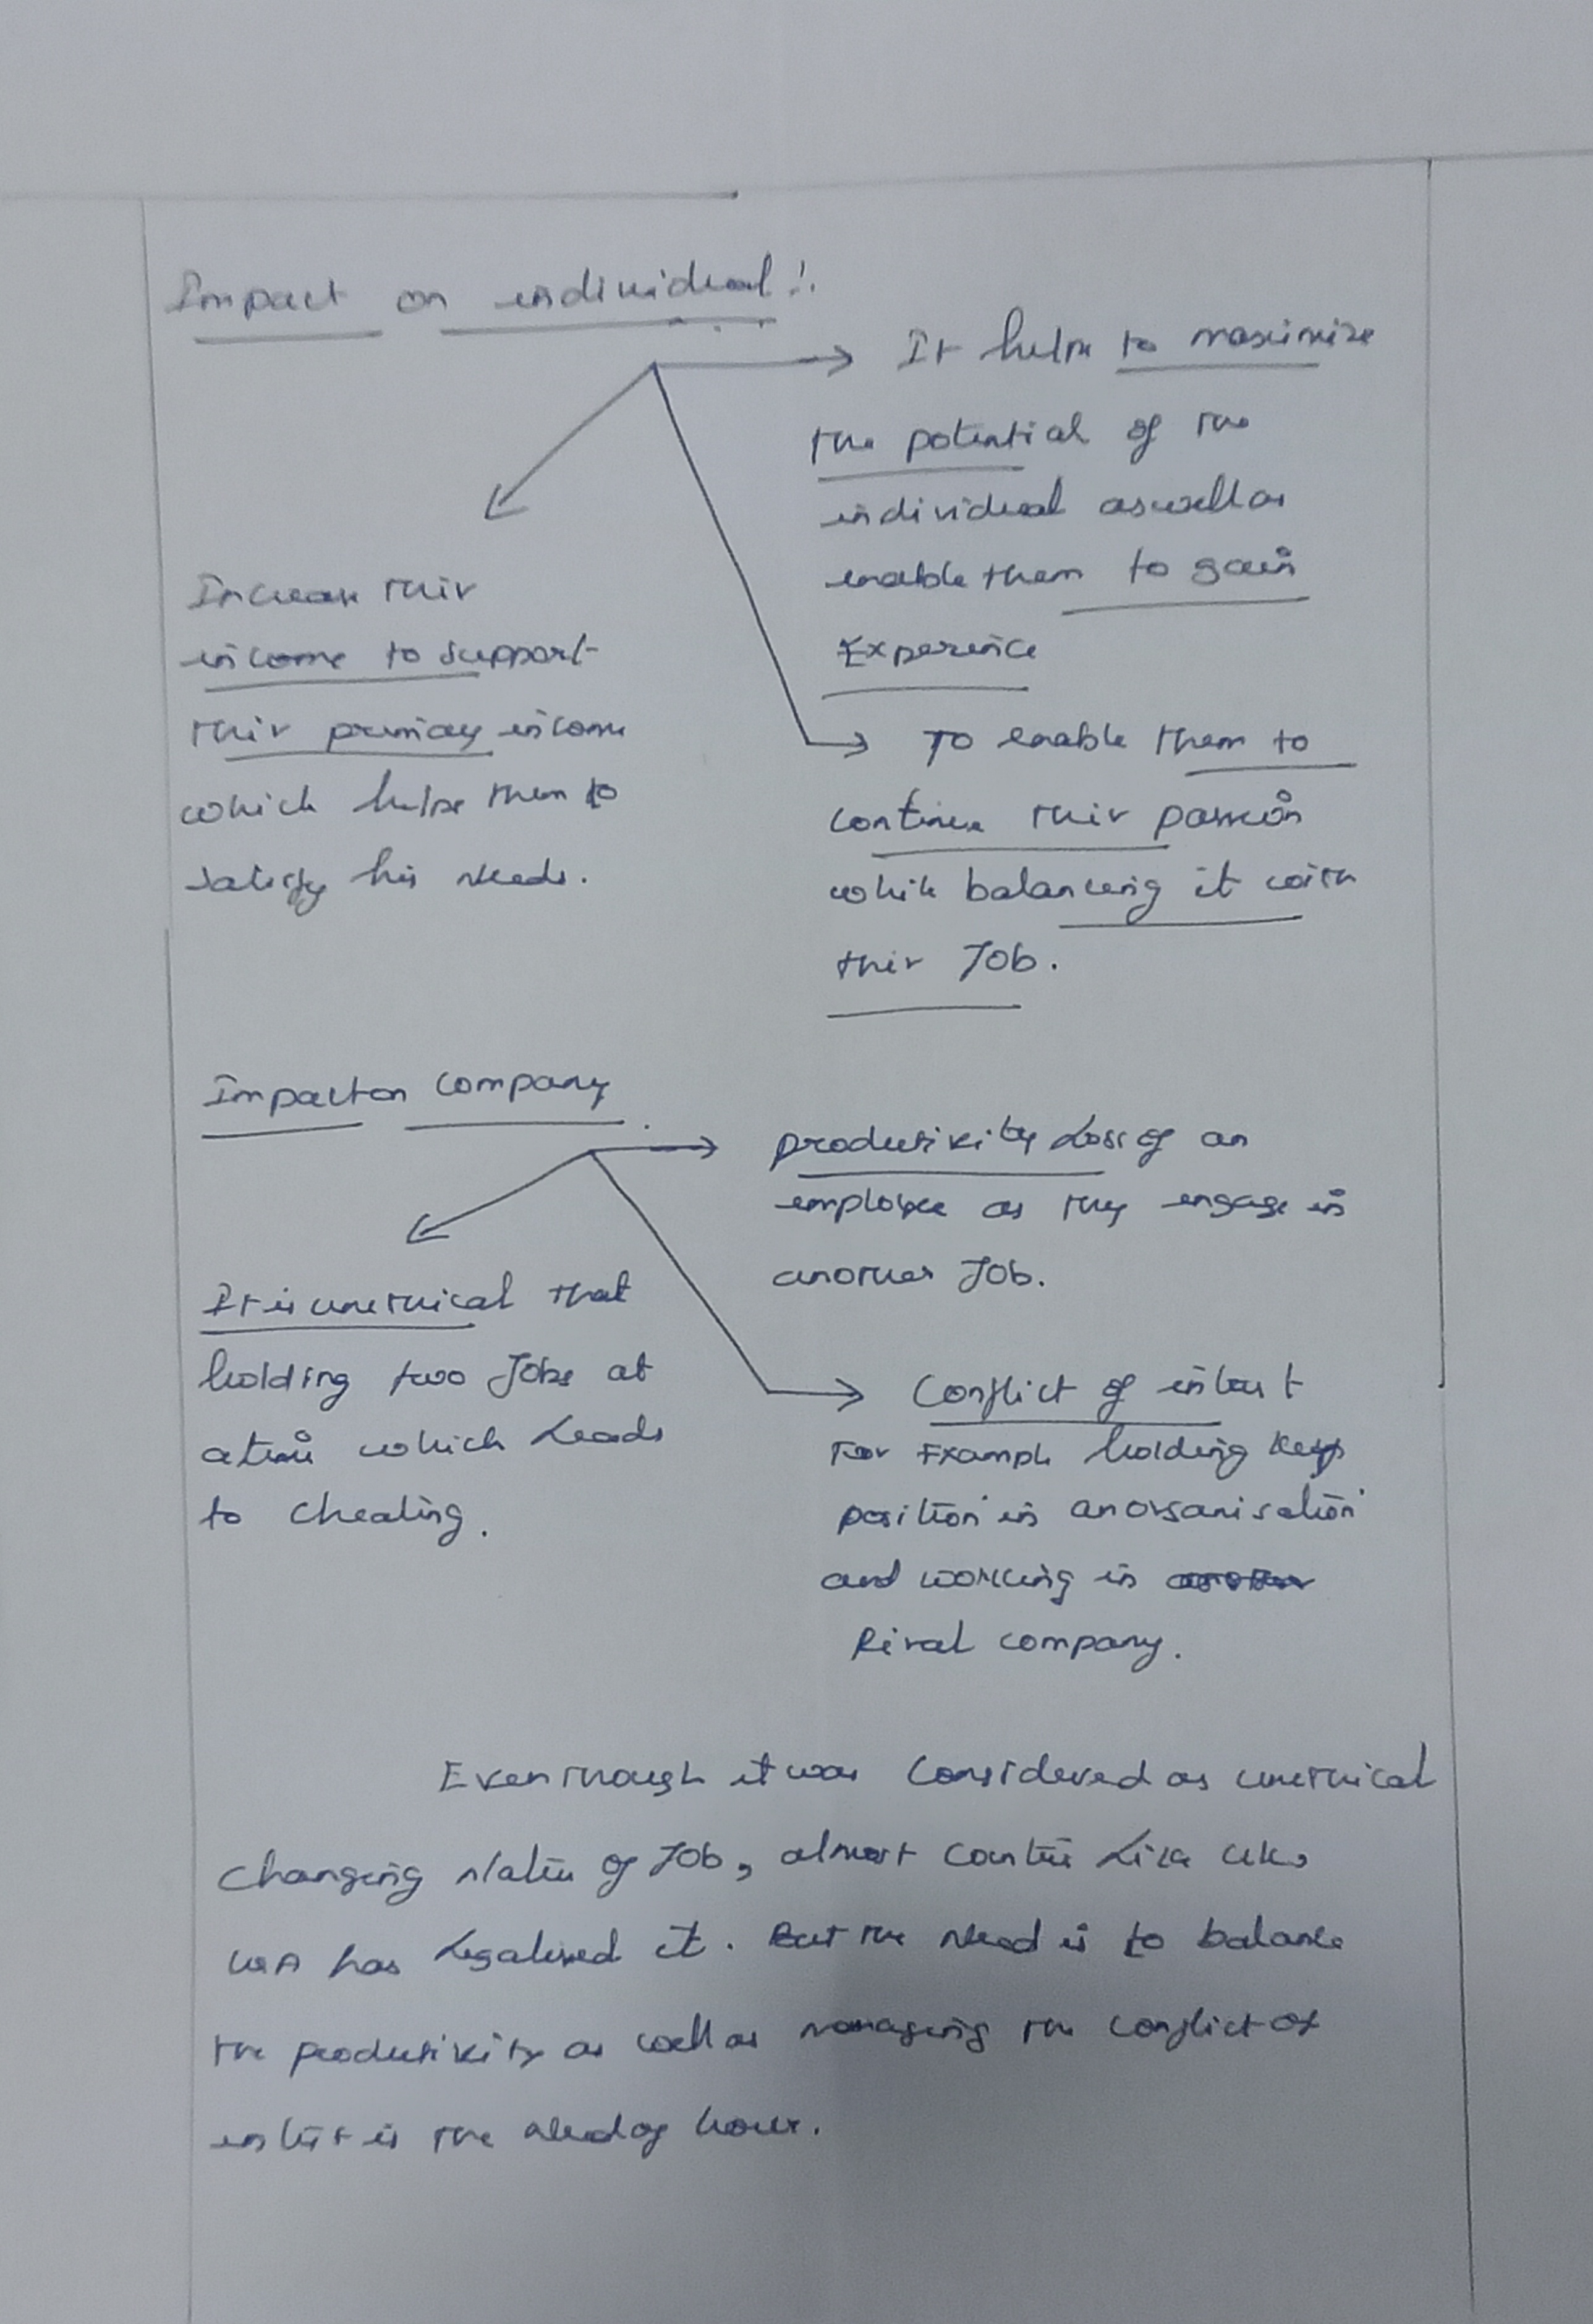 Impact on individual :
It helps to maximize
the potential of the
individual aswellas
enable them to gain
Experience
Increase thir
income to support
thir primary income
which helps them to
satisfy his needs.
To enable them to
continue thir passion
while balancing it with
thir Job.
Impact on company
productivity Loss of an
employee as they engage in
another Job.
It is unethical that
holding two Jobs at
a time which Leads
to cheating.
Conflict of
For Example holding key
position in an organisation
and working in
Rival company.
Even though it was considered as unethical
Changing of Job, almost Like UK,
USA has Legalised it. But the Need is to balance
the productivity as well as managing the conflict of
is the Need of hour.